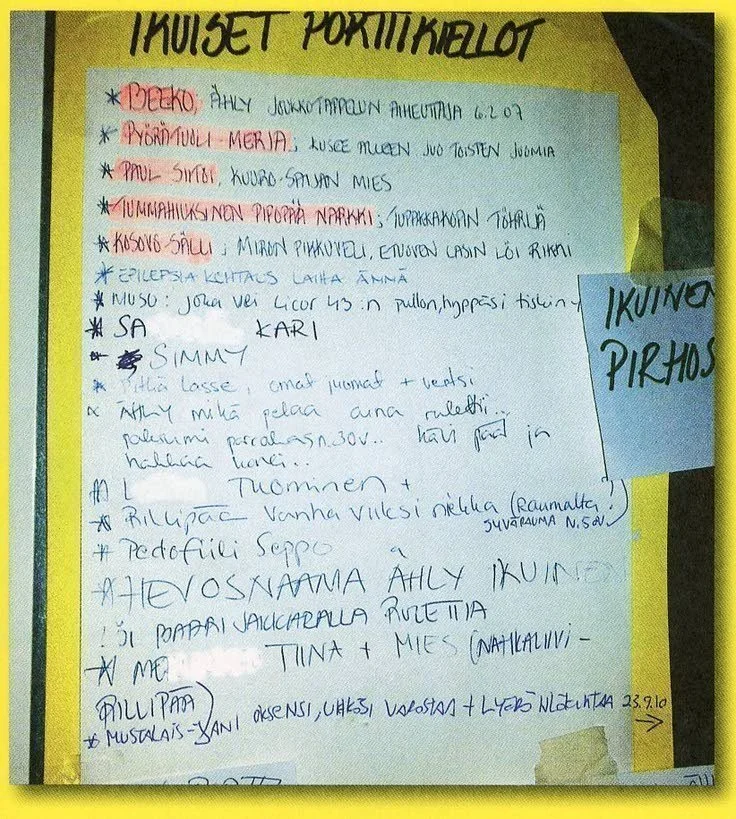 IKUISET PORTTIKIELLOT
* BEEKO, ÄHLY JOUKKOTAPPELUN AIHEUTTAJA 6.2.07
* PYÖRÄTUOLI-MERJA; KUSEE ALLEEN JUO TOISTEN JUOMIA
* PAUL SIKIÖ, KUURO-SEIJAN MIES
* TUMMAHIUKSINEN PIPOPÄÄ NARKKI; TUPAKKAKOPAN TÖHRIJÄ
* KOSOVO-SÄLLI; MIRON PIKKUVELI, ETUOVEN LASIN LÖI RIKKI
* EPILEPSIA KOHTAUS LAIHA ÄMMÄ
* MUSU: joka vei Licor 43:n pullon, hyppäsi tiskin
* SA KARI
* SIMMY
* Pitkä Lasse, omat juomat + veitsi
* ÄHLY mikä pelaa aina rulettii..
paksumpi parrakas n.30v.. kävi päälle ja
hakkaa konei..
* L TUOMINEN +
* Rillipää vanha viiksi niekka (Raumalta?)
SYVÄRAUMA N.50v
* Pedofiili Seppo
* HEVOSNAAMA ÄHLY IKUINEN
! LÖI JAKKARALLA RULETTIA
* ME TIINA + MIES (NAHKALIIVI-
RILLIPÄÄ)
* MUSTALAIS-JANI OKSENSI, UHKASI VARASTAA + LYÖDÄ 23.9.10
→
IKUINEN
PIRHOS